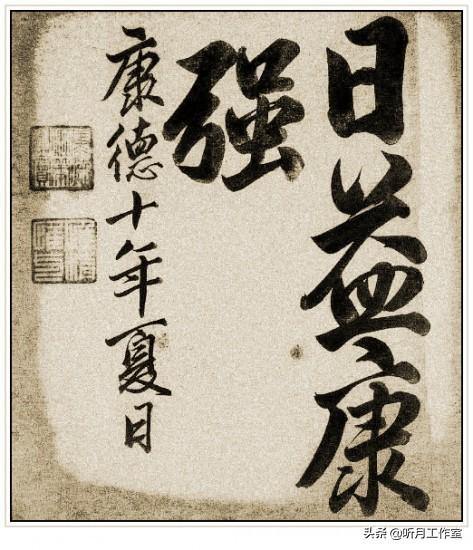 日益康
强
康德十年夏日
头条 @听月工作室